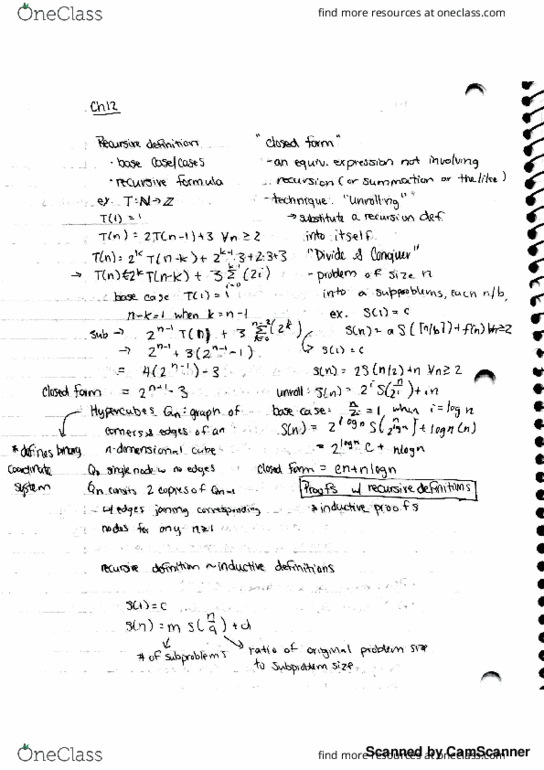 OneClass
find more resources at oneclass.com
Ch12
Recursive definition
· base case/cases
· recursive formula
ex. T: N → Z
T(1) = 1
T(n) = 2T(n-1)+3 ∀n ≥ 2
T(n) = 2^k T(n-k) + 2^k-1 · 3 + 2·3+3
→ T(n) = 2^k T(n-k) + 3 Σ (2^i)
base case T(1) =
n-k=1 when k=n-1
sub → 2^n-1 T(1) + 3 Σ (2^k)
→ 2^n-1 + 3(2^n-1 - 1)
= 4(2^n-1) - 3
closed form = 2^n-1 - 3
Hypercubes Qn: graph of
corners & edges of an
n-dimensional cube
* defines binary
coordinate
system
Q0 single node w no edges
Qn consits 2 copies of Qn-1
w/ edges joining corresponding
nodes for any n≥1
"closed form"
- an equiv. expression not involving
recursion (or summation or the like)
- technique: "unrolling"
→ substitute a recursion def.
into itself
"Divide & Conquer"
- problem of size n
into a subproblems, each n/b,
ex. S(1) = C
S(n) = a S(⌈n/b⌉) + f(n) ∀n≥2
S(1) = C
S(n) = 2S(n/2)+n ∀n ≥ 2
unroll: S(n) = 2^i S(n/2^i) + in
base case: n/2^i = 1, when i = log n
S(n) = 2^log n S(n/2^log n) + log n (n)
= 2^log n C + nlogn
closed form = cn+nlogn
Proofs w/ recursive definitions
* inductive proofs
recursive definition ~ inductive definitions
S(1) = C
S(n) = m S(n/q) + d
# of subproblems
ratio of original problem size
to subproblem size
Scanned by CamScanner
OneClass
find more resources at oneclass.com